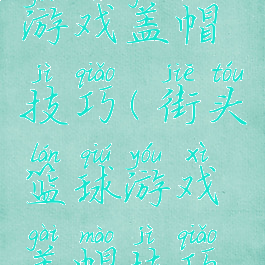 游戏盖帽
jì qiǎo jiē tóu
技巧(街头
lán qiú yóu xì
篮球游戏
gài mào jì qiǎo
盖帽技巧